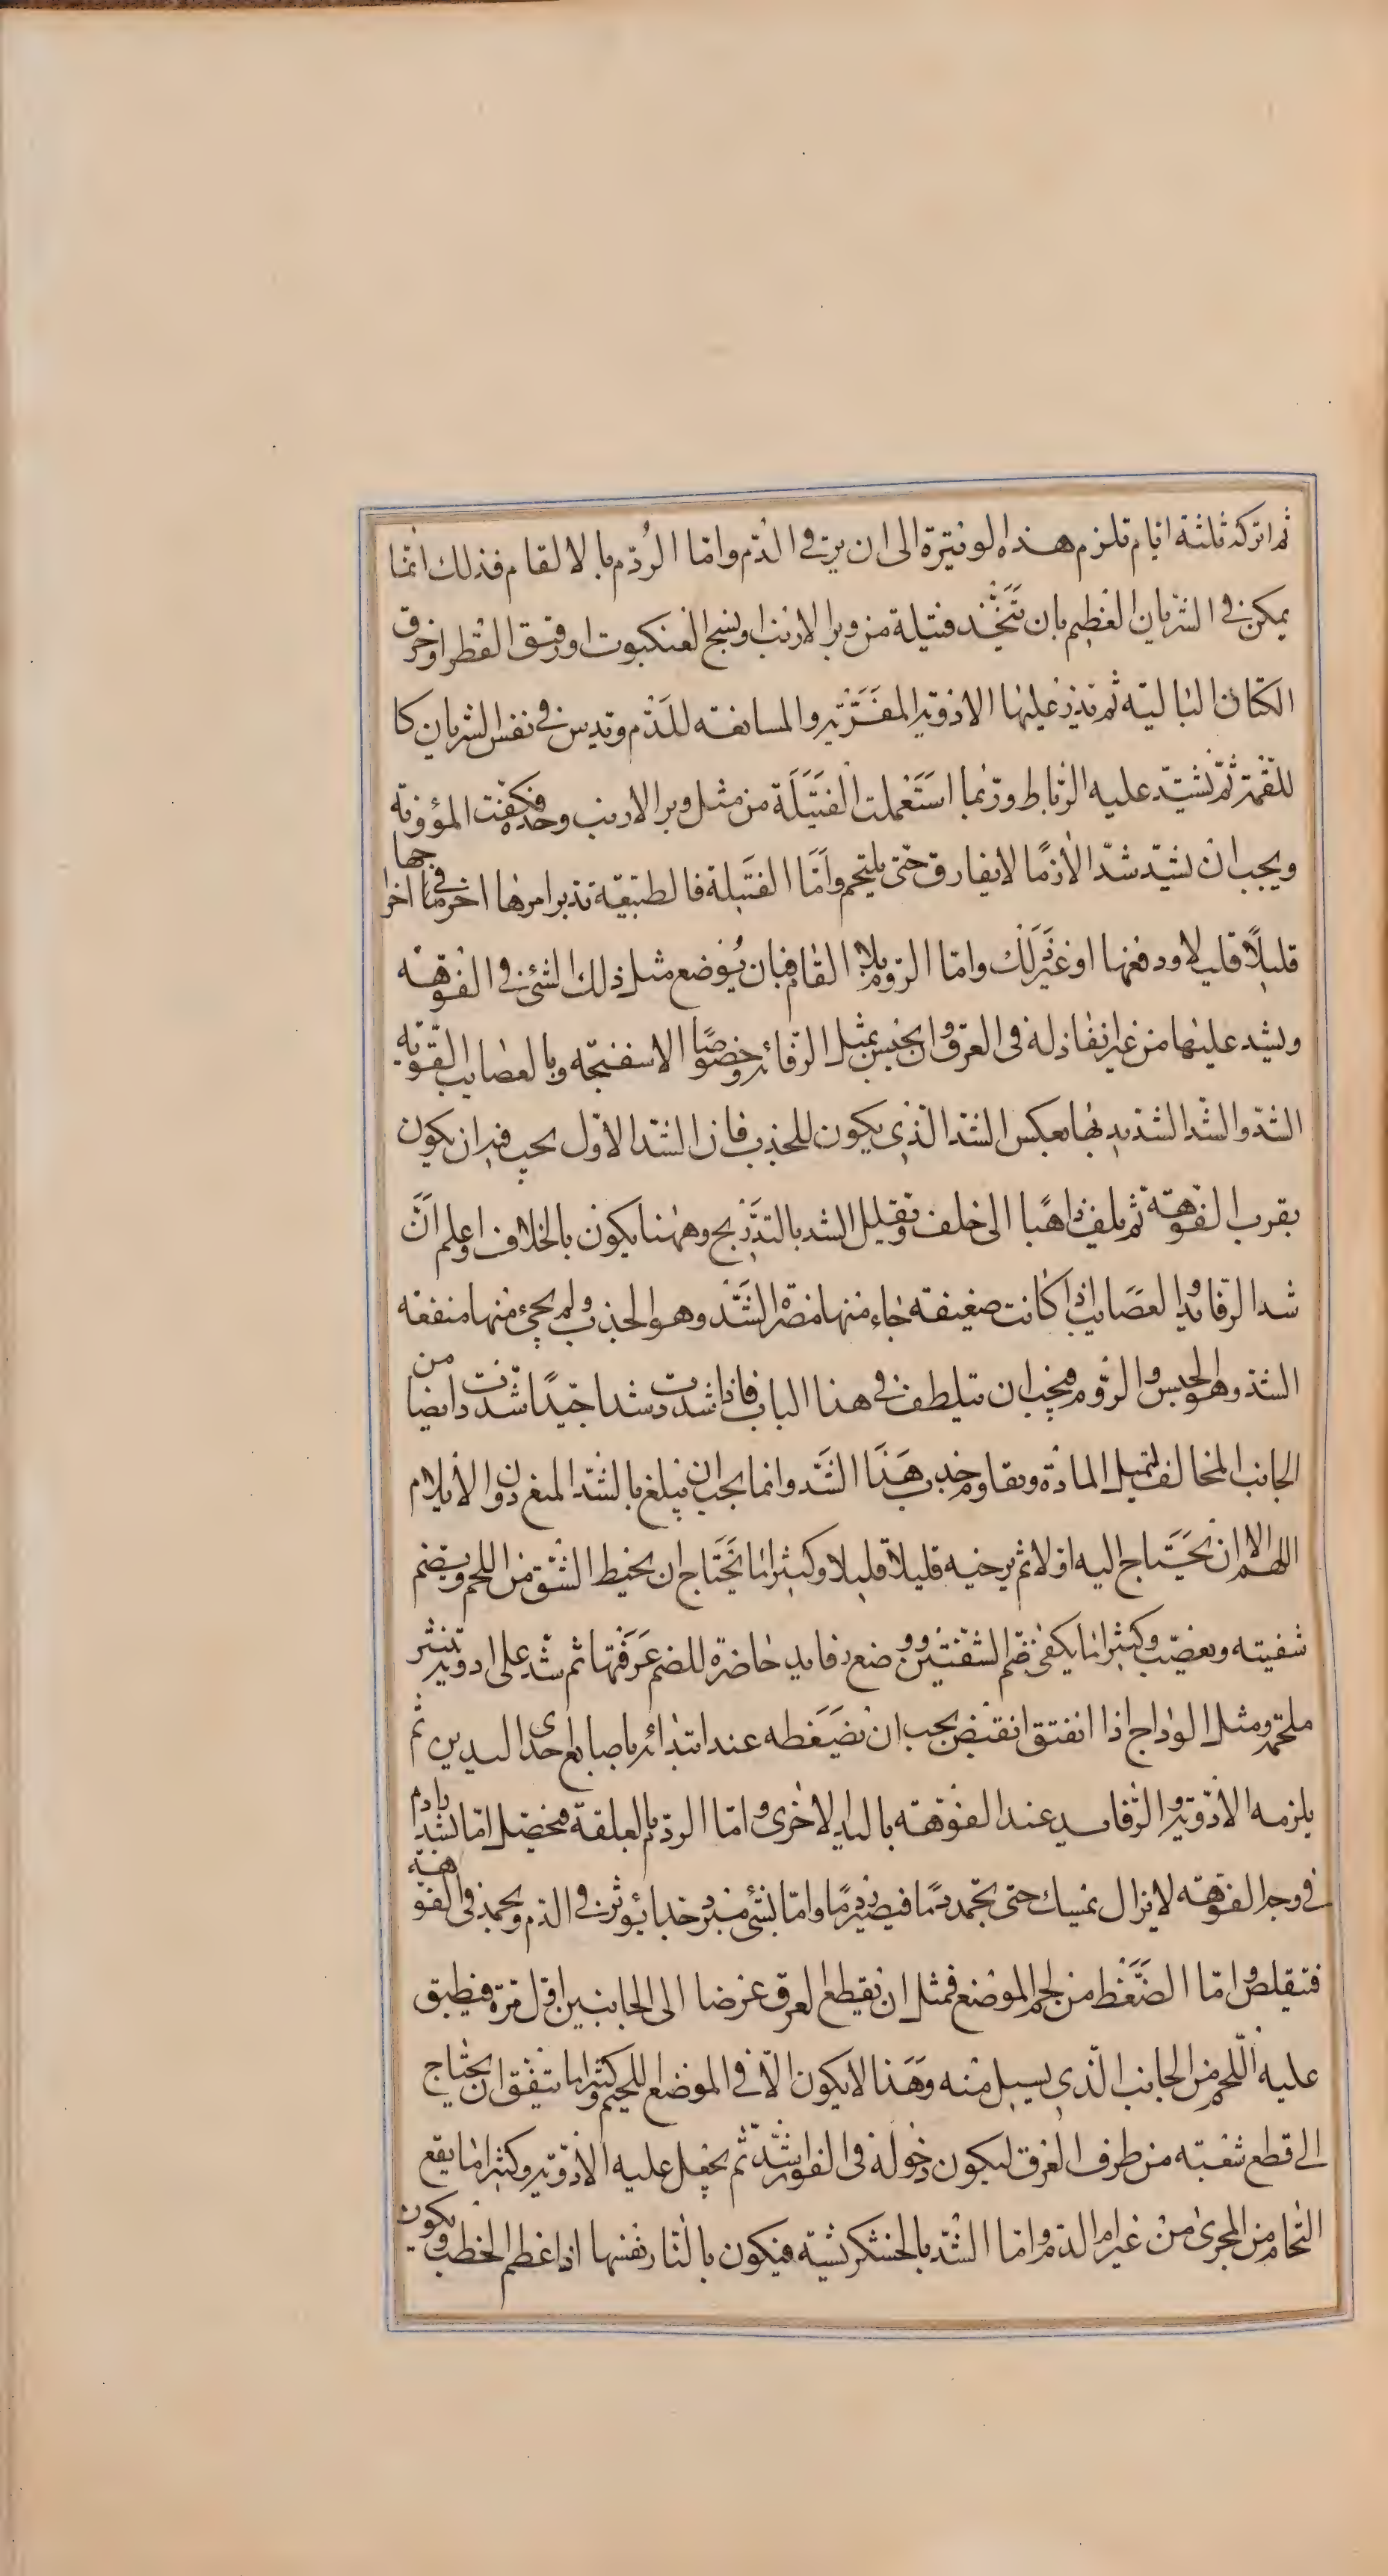 ثم اتركه ثلثة ايام تلزم هذه الوتيرة الى ان يرقى الدم واما الردم بالالقام فذلك انما
يمكن فى الشريان العظيم بان تتخذ فتيلة من وبر الارنب او نسج العنكبوت او رقيق القطن او خرق
الكتان البالية ثم تذر عليها الادوية المغرية والمانعة للدم وتدس فى نفس الشريان كا
للقمة ثم تشد عليه الرباط وربما استعملت الفتيلة من مثل وبر الارنب وحده فكفت المؤونة
ويجب ان تشد شدا لازما لا يفارق حتى يلتحم واما الفتيلة فالطبيعة تدبر امرها اخر ما فى اخراجها
قليلا قليلا ودفعها او غير ذلك واما الردم بلا القام فبان يوضع مثل ذلك الشئ فى الفوهة
ويشد عليها من غير انفاذ له فى العرق وان يحبس بمثل الرفائد وخصوصا الاسفنجية وبالعصايب القوية
الشد والشد الشديد بها بعكس الشد الذى يكون للجذب فان الشد الاول يجب فيه ان يكون
بقرب الفوهة ثم يلف ذاهبا الى خلف وتقليل الشد بالتدريج وههنا يكون بالخلاف واعلم ان
شد الرفايد والعصايب اذا كانت ضعيفة جاء منها مضرة الشد وهو الجذب ولم يجئ منها منفعة
الشد وهو الحبس والردم فيجب ان يتلطف فى هذا الباب فاذا شددت شدا جيدا شددت ايضا من
الجانب المخالف لتميل المادة وتقاوم جذب هذا الشد وانما يجب ان يبلغ بالشد المنع دون الايلام
اللهم الا ان يحتاج اليه اولا ثم يرخيه قليلا قليلا وكثيرا ما يحتاج ان يخيط الشق من اللحم ويضم
شفيته ويعصب وكثيرا ما يكفى ضم الشفتين ووضع رفايد حاضرة للضم عرفتها ثم شد على ادوية تنثر
ملحمة ومثل الوداج اذا انفتق انقبض يجب ان تضغطه عند ابتدائه باصابع احدى اليدين ثم
يلزمه الادوية والرفايد عند الفوهة باليد الاخرى واما الردم بالعلقة فيحصل اما بشد ادام
فى وجه الفوهة لا يزال يمسك حتى يجمد دما فيصير ردما واما بشئ مبرد جدا يؤثر فى الدم ويجمد فى الفوهة
فتيقلص واما الضغط من لحم الموضع فمثل ان يقطع العرق عرضا الى الجانبين اقل مرة فيطبق
عليه اللحم من الجانب الذى يسيل منه وهذا لا يكون الا فى الموضع اللحيم وكثيرا ما يتفق ان يحتاج
الى قطع شفبته من طرف العرق ليكون دخوله فى الغور اشد ثم يجعل عليه الادوية وكثيرا ما يقع
التحام من المجرى من غير ام الدم واما الشد بالخشكريشة فيكون بالنار نفسها اذا عظم الخطب ويكون